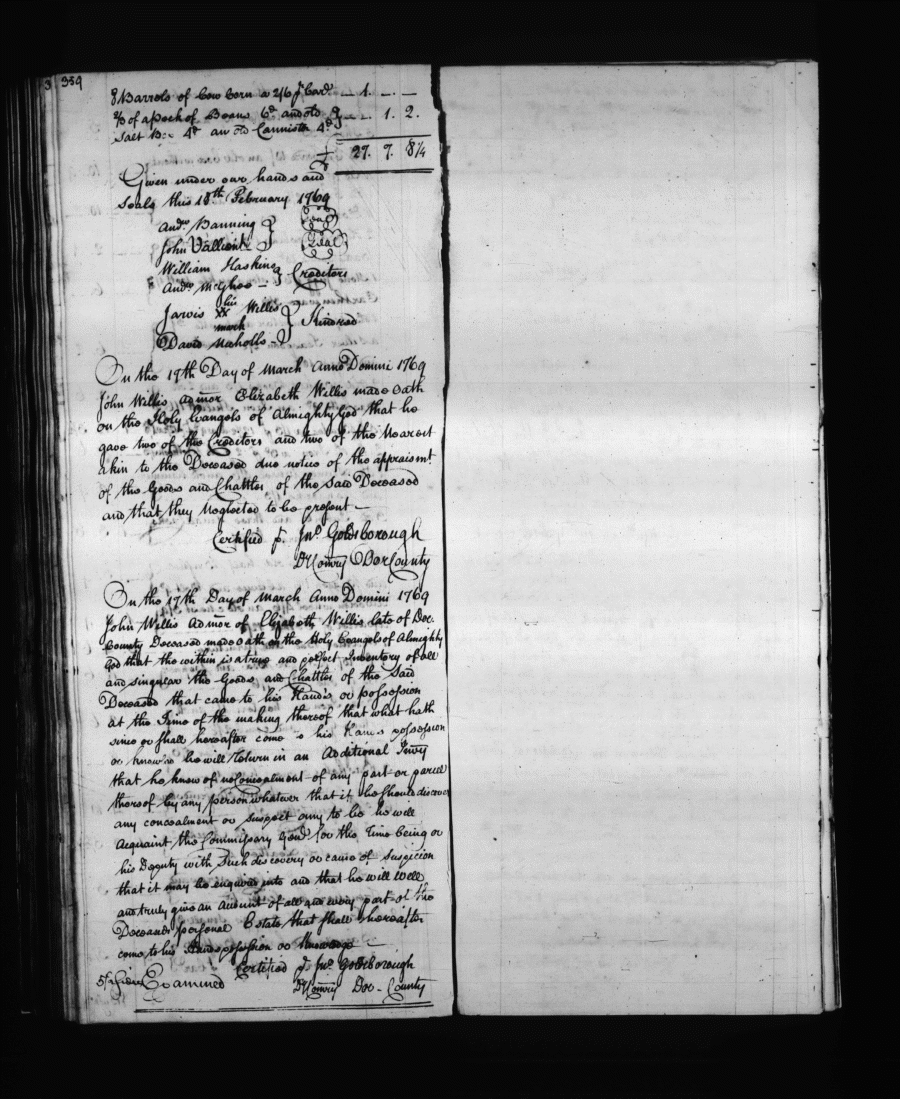 3 359
8 Barrels of Cow Corn a 2/6 pr Barl. — 1. — . —
2/3 of a Peck of Beans 6d and old } — . 1. 2.
Salt Box 4d an old Cannister 4d }
£ 27. 7. 8¼
Given under our hands and
Seals this 18th February 1769
Andw Banning } Seal
John Valliant } Seal
William Haskins } Creditors
Andw McGhee — }
Jarvis his XX mark Willis } Kindred
David Naholls — }
On the 17th Day of March Anno Domini 1769
John Willis admor Elizabeth Willis made Oath
on the Holy Evangels of Almighty God that he
gave two of the Creditors and two of the Nearest
akin to the Deceased due notice of the appraismt
of the Goods and Chattles of the Said Deceased
and that they Neglected to be present —
Certified p. Jno. Goldsborough
DyComry Dor County
On the 17th Day of March Anno Domini 1769
John Willis Admor of Elizabeth Willis late of Dor.
County Deceased made Oath on the Holy Evangels of Almighty
God that the within is a true and perfect Inventory of all
and singular the Goods and Chattles of the Said
Deceased that came to his Hands or possession
at the Time of the making thereof that what hath
since or shall hereafter come to his Hands possession
or knows he will Return in an Additional Invy
that he know of no Concealment of any part or parcel
thereof by any person whatever that if he should discover
any concealment or suspect any to be he will
Acquaint the Commissary Genl for the Time being or
his Deputy with Such discovery or cause of Suspicion
that it may be enquired into and that he will well
and truly give an Account of all and every part of the
Deceaseds personal Estate that shall hereafter
come to his Hands possession or Knowledge —
Certified p Jno. Goldsborough
Examined DyComry Dor. County